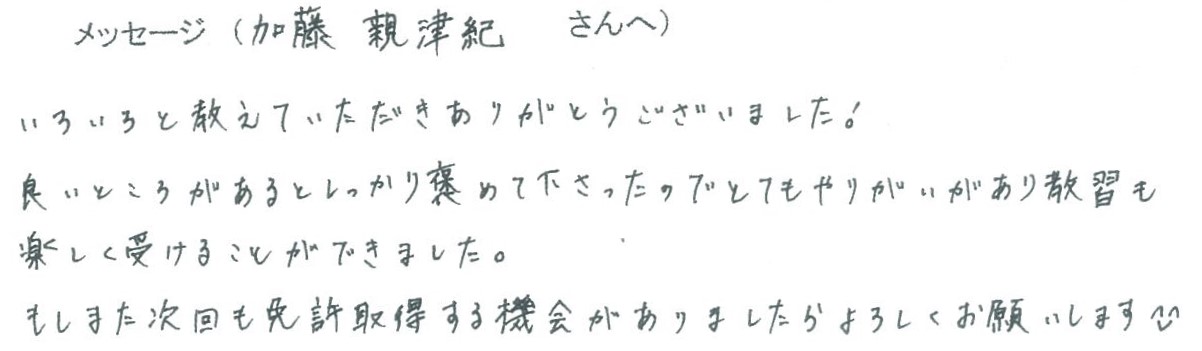 メッセージ（加藤 親津紀 さんへ）
いろいろと教えていただきありがとうございました!
良いところがあるとしっかり褒めて下さったのでとてもやりがいがあり教習も
楽しく受けることができました。
もしまた次回も免許取得する機会がありましたらよろしくお願いします